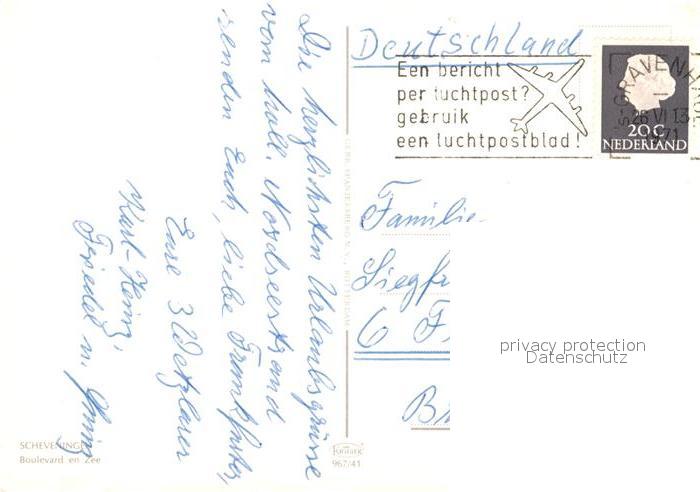 Die herzlichsten Urlaubsgrüsse
vom holl. Nordseestrand
senden Euch, liebe Frankfurter,
Eure 3 Wetzlarer
Karl-Heinz,
Friedel u.
Deutschland
Een bericht
per luchtpost?
gebruik
een luchtpostblad!
'S-GRAVENHAGE
26 VI 13
1971
20C
NEDERLAND
Familie
Siegfr
6 F
privacy protection
Datenschutz
SCHEVENINGEN
Boulevard en Zee
967/41